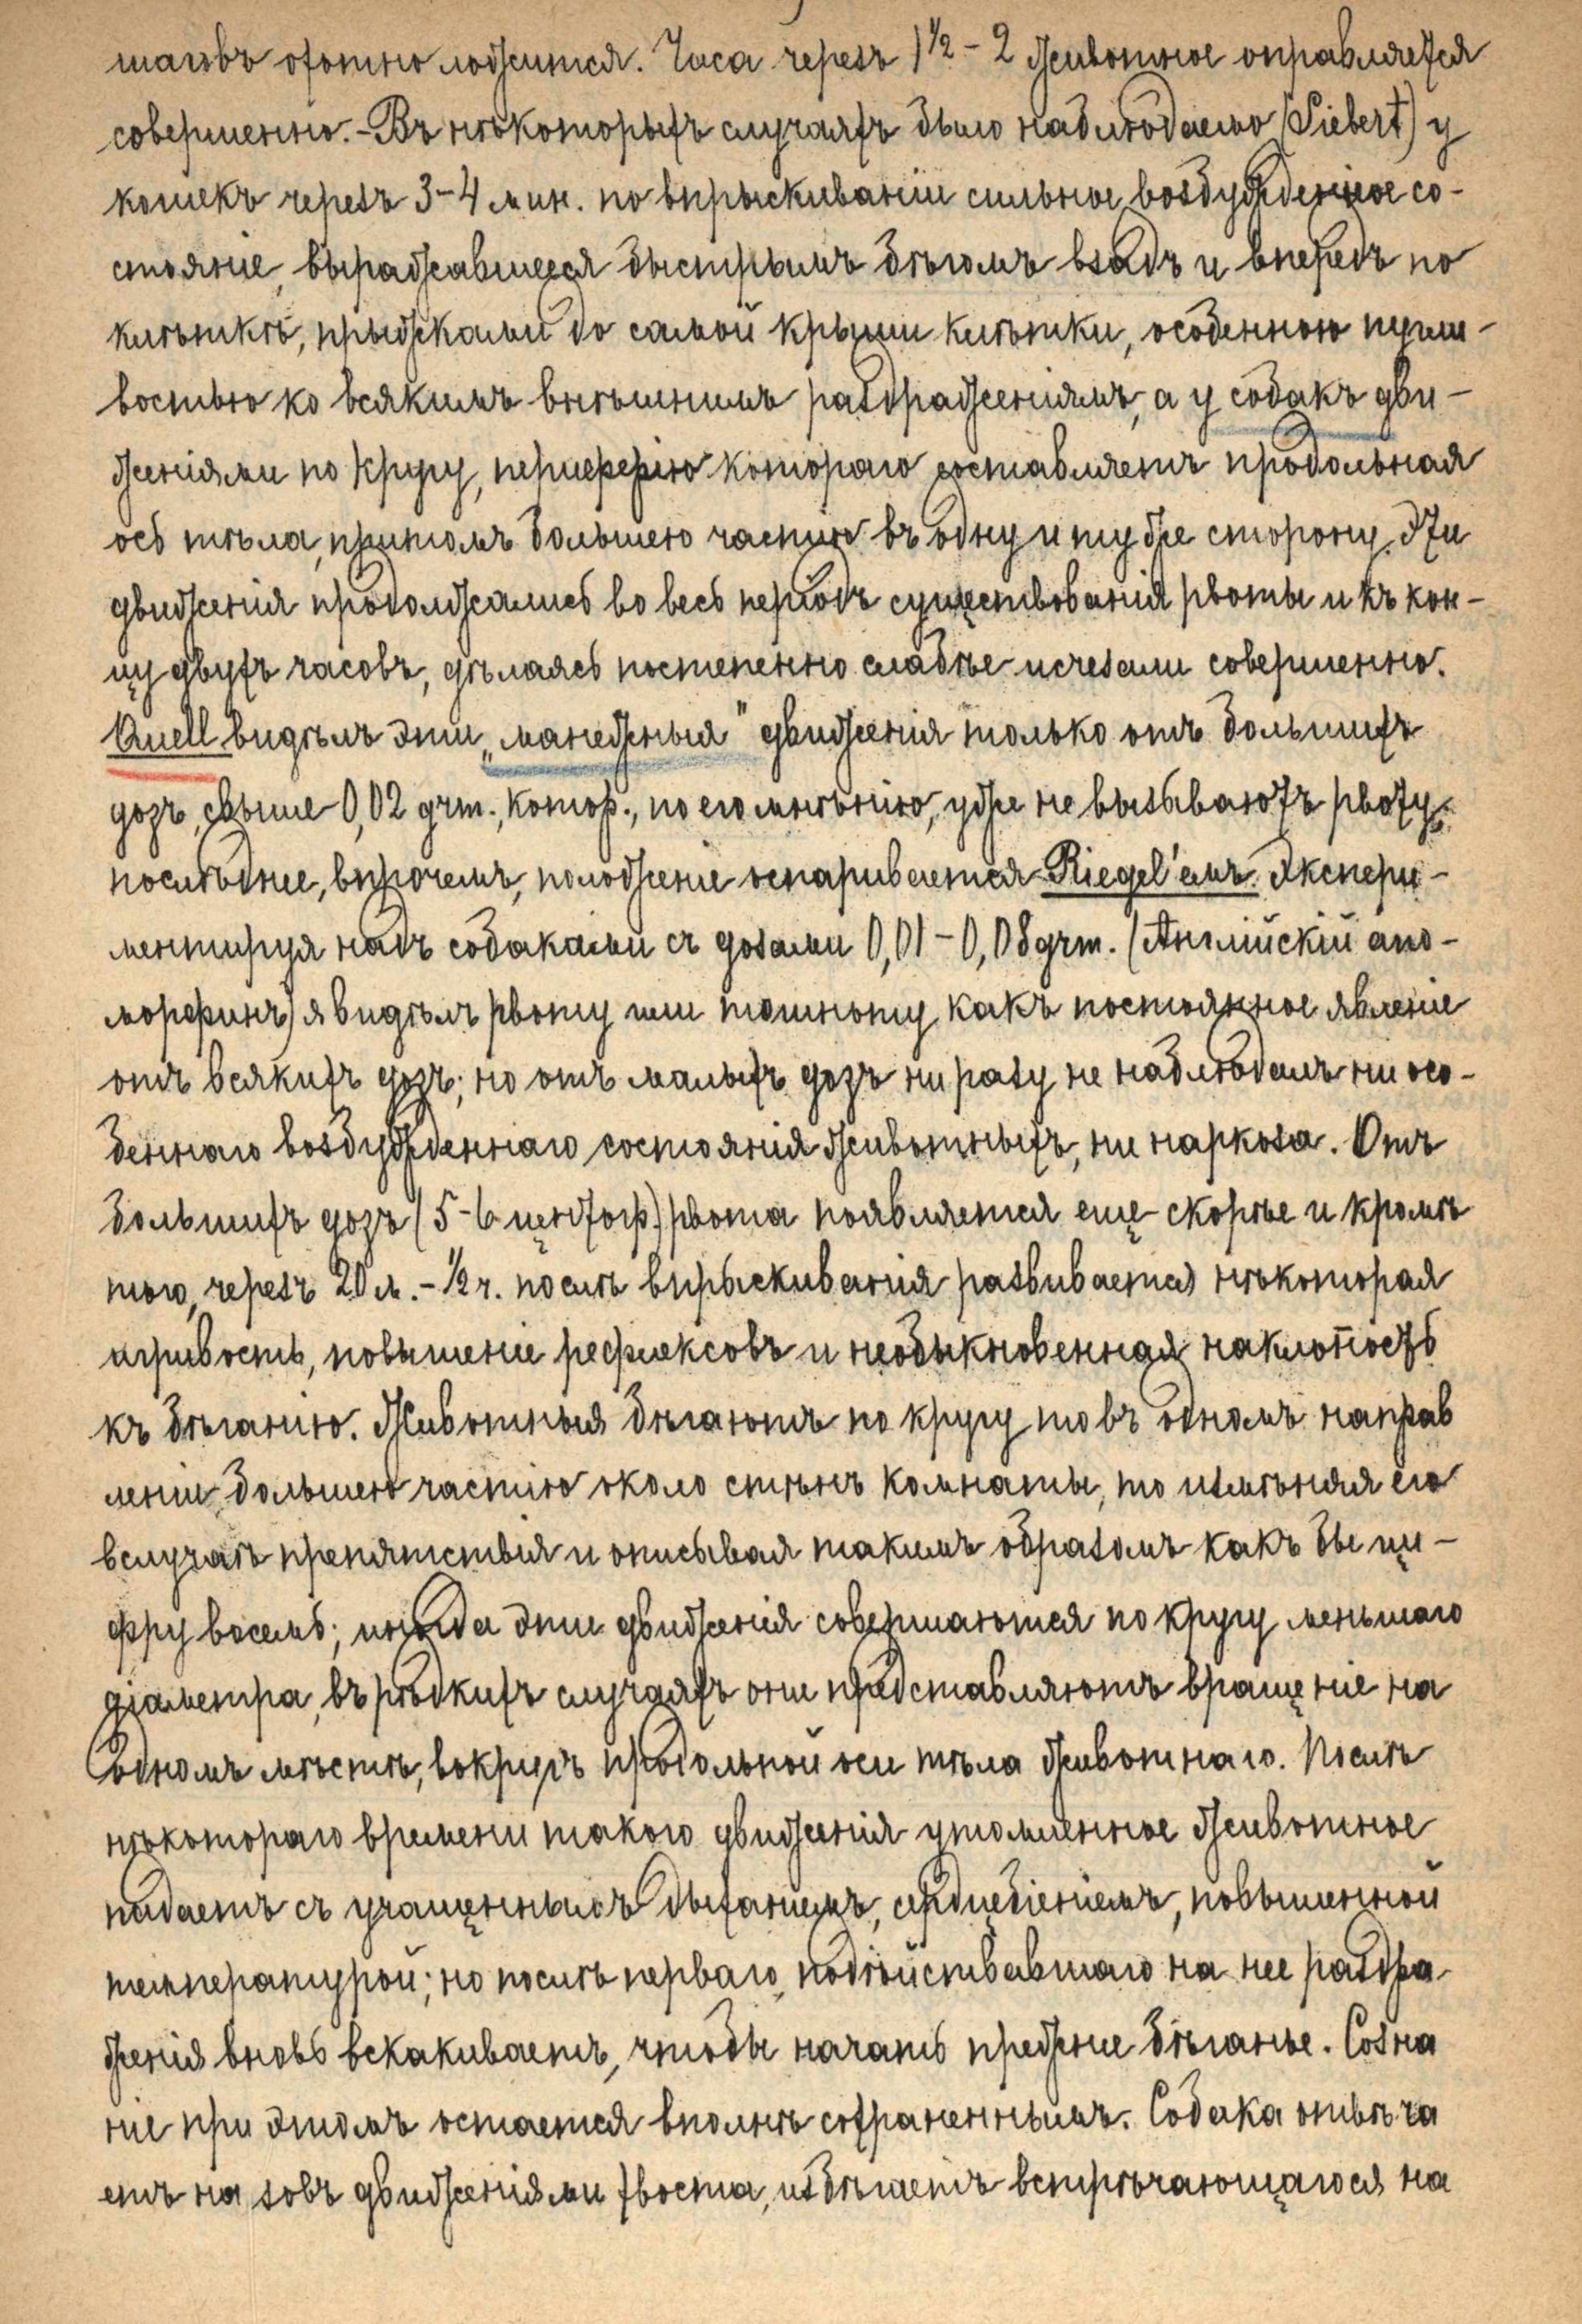 шаговъ охотно ложится. Часа черезъ 1½ – 2 животное оправляется
совершенно. – Въ нѣкоторыхъ случаяхъ было наблюдаемо (Siebert) у
кошекъ черезъ 3–4 мин. по впрыскиваніи сильное возбужденное со-
стояніе, выражавшееся быстрымъ бѣгомъ взадъ и впередъ по
клѣткѣ, прыжками до самой крыши клѣтки, особенною пугли-
востью ко всякимъ внѣшнимъ раздраженіямъ, а у собакъ дви-
женіями по кругу, периферію котораго составляетъ продольная
ось тѣла, притомъ большею частію въ одну и ту же сторону. Эти
движенія продолжались во весь періодъ существованія рвоты и къ кон-
цу двухъ часовъ, дѣлаясь постепенно слабѣе исчезали совершенно.
Quell видѣлъ эти „манежныя" движенія только отъ большихъ
дозъ, свыше 0,02 grm., котор., по его мнѣнію, уже не вызываютъ рвоту;
послѣднее, впрочемъ, положеніе оспаривается Riegel'емъ. Экспери-
ментируя надъ собаками съ дозами 0,01 – 0,08 grm. (Англійскій апо-
морфинъ) я видѣлъ рвоту или тошноту какъ постоянное явленіе
отъ всякихъ дозъ; но отъ малыхъ дозъ ни разу не наблюдалъ ни осо-
беннаго возбужденнаго состоянія животныхъ, ни наркоза. Отъ
большихъ дозъ (5–6 центигр.) рвота появляется еще скорѣе и кромѣ
того, черезъ 20 м. – ½ ч. послѣ впрыскиванія развивается нѣкоторая
игривость, повышеніе рефлексовъ и необыкновенная наклонность
къ бѣганію. Животныя бѣгаютъ по кругу то въ одномъ направ
леніи, большею частію около стѣнъ комнаты, то измѣняя его
вслучаѣ препятствія и описывая такимъ образомъ какъ бы ци-
фру восемь; иногда эти движенія совершаются по кругу меньшаго
діаметра, въ рѣдкихъ случаяхъ они представляютъ вращеніе на
одномъ мѣстѣ, вокругъ продольной оси тѣла животнаго. Послѣ
нѣкотораго времени такого движенія утомленное животное
падаетъ съ учащеннымъ дыханіемъ, сердцебіеніемъ, повышенной
температурой; но послѣ перваго, подѣйствовавшаго на нее раздра-
женія вновь вскакиваетъ, чтобы начать прежнее бѣганье. Созна
ніе при этомъ остается вполнѣ сохраненнымъ. Собака отвѣча
етъ на зовъ движеніями хвоста, избѣгаетъ встрѣчающагося на